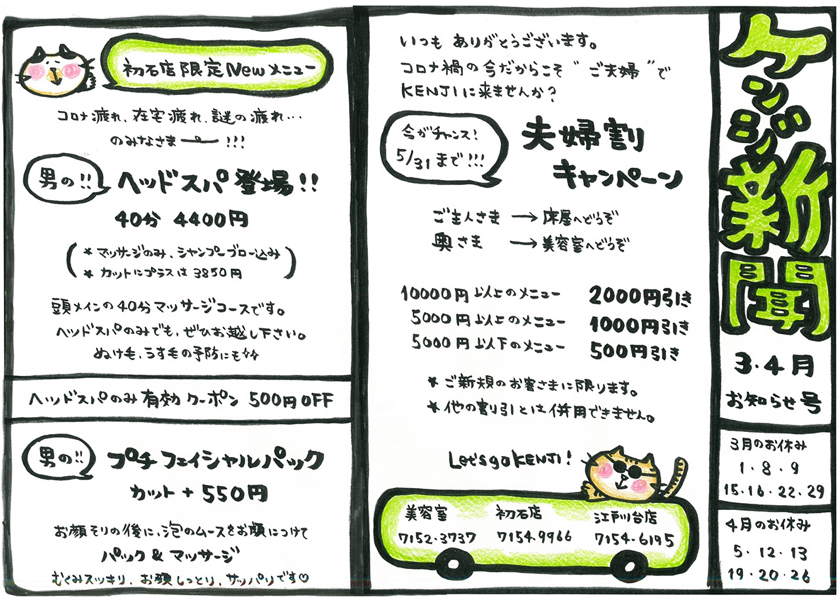 ケンジ新聞
3・4月
お知らせ号
3月のお休み
1・8・9
15・16・22・29
4月のお休み
5・12・13
19・20・26
いつも ありがとうございます。
コロナ禍の今だからこそ"ご夫婦"で
KENJIに来ませんか?
今がチャンス!
5/31まで!!!
夫婦割
キャンペーン
ご主人さま → 床屋へどうぞ
奥さま → 美容室へどうぞ
10000円以上のメニュー 2000円引き
5000円以上のメニュー 1000円引き
5000円以下のメニュー 500円引き
* ご新規のお客さまに限ります。
* 他の割り引とは併用できません。
Let's go KENJI!
美容室 初石店 江戸川台店
7152-3737 7154-9966 7154-6195
初石店限定Newメニュー
コロナ疲れ、在宅疲れ、謎の疲れ…
のみなさまー!!!
男の!! ヘッドスパ登場!!
40分 4400円
* マッサージのみ、シャンプーブロー込み
* カットにプラスは3850円
頭メインの40分マッサージコースです。
ヘッドスパのみでも、ぜひお越し下さい。
ぬけ毛、うす毛の予防にも
ヘッドスパのみ有効クーポン 500円OFF
男の!! プチフェイシャルパック
カット+550円
お顔そりの後に、泡のムースをお顔につけて
パック&マッサージ
むくみスッキリ、お顔しっとり、サッパリです♡